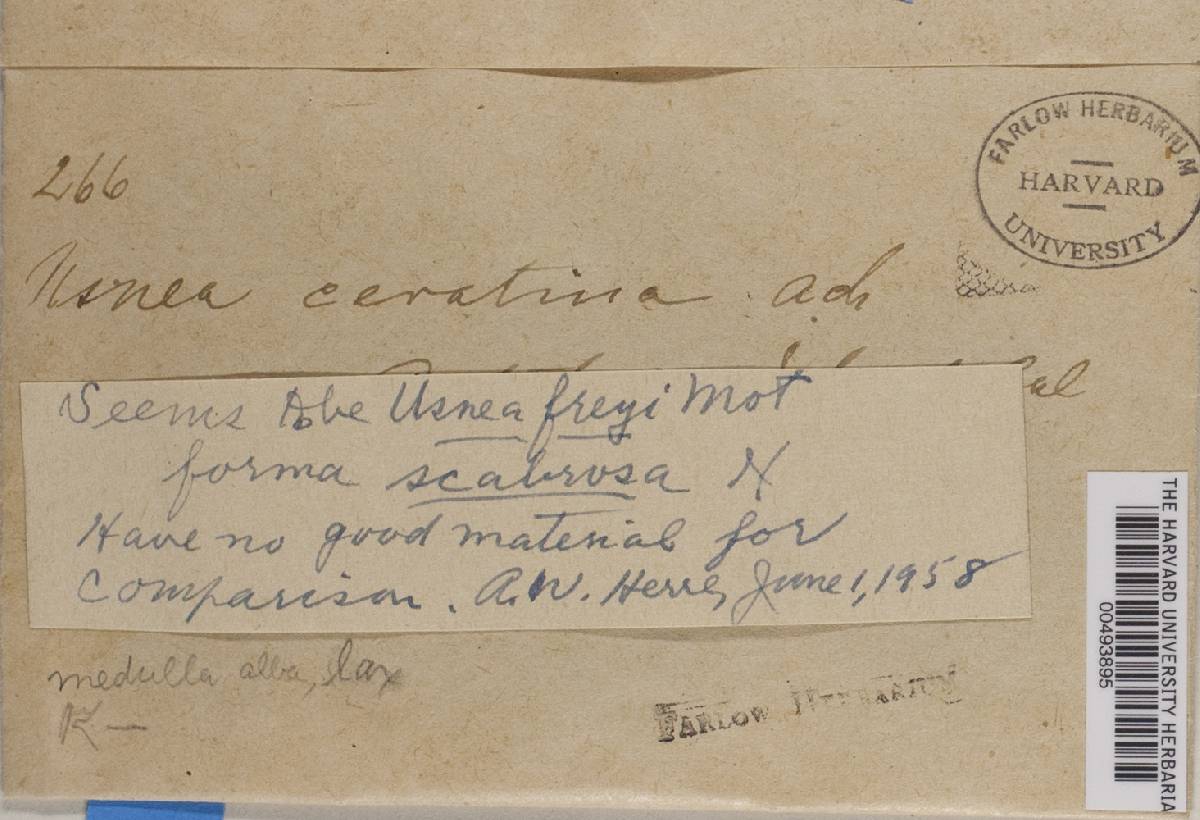 FARLOW HERBARIUM
HARVARD
UNIVERSITY
266
Usnea ceratina Ach
Cal
Seems to be Usnea freyi Mot
forma scabrosa
Have no good material for
Comparison. A.W. Herre, June 1, 1958
medulla alba, lax
K —
FARLOW HERBARIUM
THE HARVARD UNIVERSITY HERBARIA
00493895